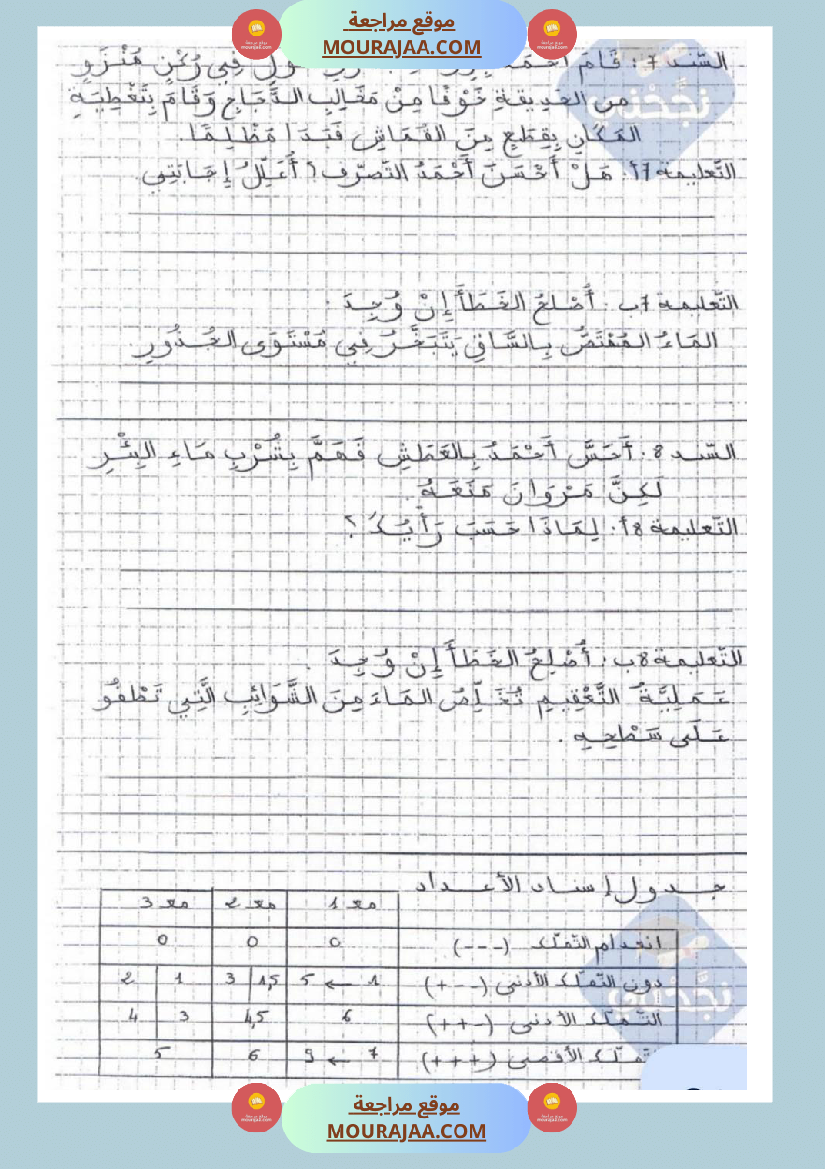 موقع مراجعة
MOURAJAA.COM
السّند 7 : قَامَ أَحْمَدُ فِي رُكْنٍ مُنْزَوٍ
من الحَدِيقَةِ خَوْفًا مِنْ مَخَالِبِ الدَّجَاجِ وَقَامَ بِتَغْطِيَةِ
المَكَانِ بِقِطَعٍ مِنَ القُمَاشِ فَبَدَا مُظْلِمًا.
التّعليمة 7أ: هَلْ أَحْسَنَ أَحْمَدُ التَصرّف؟ أُعَلِّلُ إِجَابَتِي.
التّعليمة 7ب : أُصْلِحُ الخَطَأَ إِنْ وُجِدَ .
المَاءُ المُمْتَصُّ بِالسَّاقِ يَتَبَخَّرُ فِي مُسْتَوَى الجُذُورِ.
السّند 8 : أَحَسَّ أَحْمَدُ بِالعَطَشِ فَهَمَّ بِشُرْبِ مَاءِ البِئْرِ
لَكِنَّ مَرْوَانَ مَنَعَهُ .
التّعليمة 8أ: لِمَاذَا حَسَبَ رَأْيُكَ ؟
التّعليمة 8ب : أُصْلِحُ الخَطَأَ إِنْ وُجِدَ .
عَمَلِيَّةُ التَّعْقِيمِ تُخَلِّصُ المَاءَ مِنَ الشَّوَائِبِ الَّتِي تَطْفُو
عَلَى سَطْحِهِ .
جدول إسناد الأعداد
مع 1 مع 2 مع 3
انعدام التملّك (---) 0 0 0
دون التملّك الأدنى (--+) 1 ← 5 1,5 3 1 2
التملّك الأدنى (-++) 6 4,5 3 4
التملّك الأقصى (+++) 7 ← 9 6 5
نجّحني
نجّحني
موقع مراجعة
MOURAJAA.COM